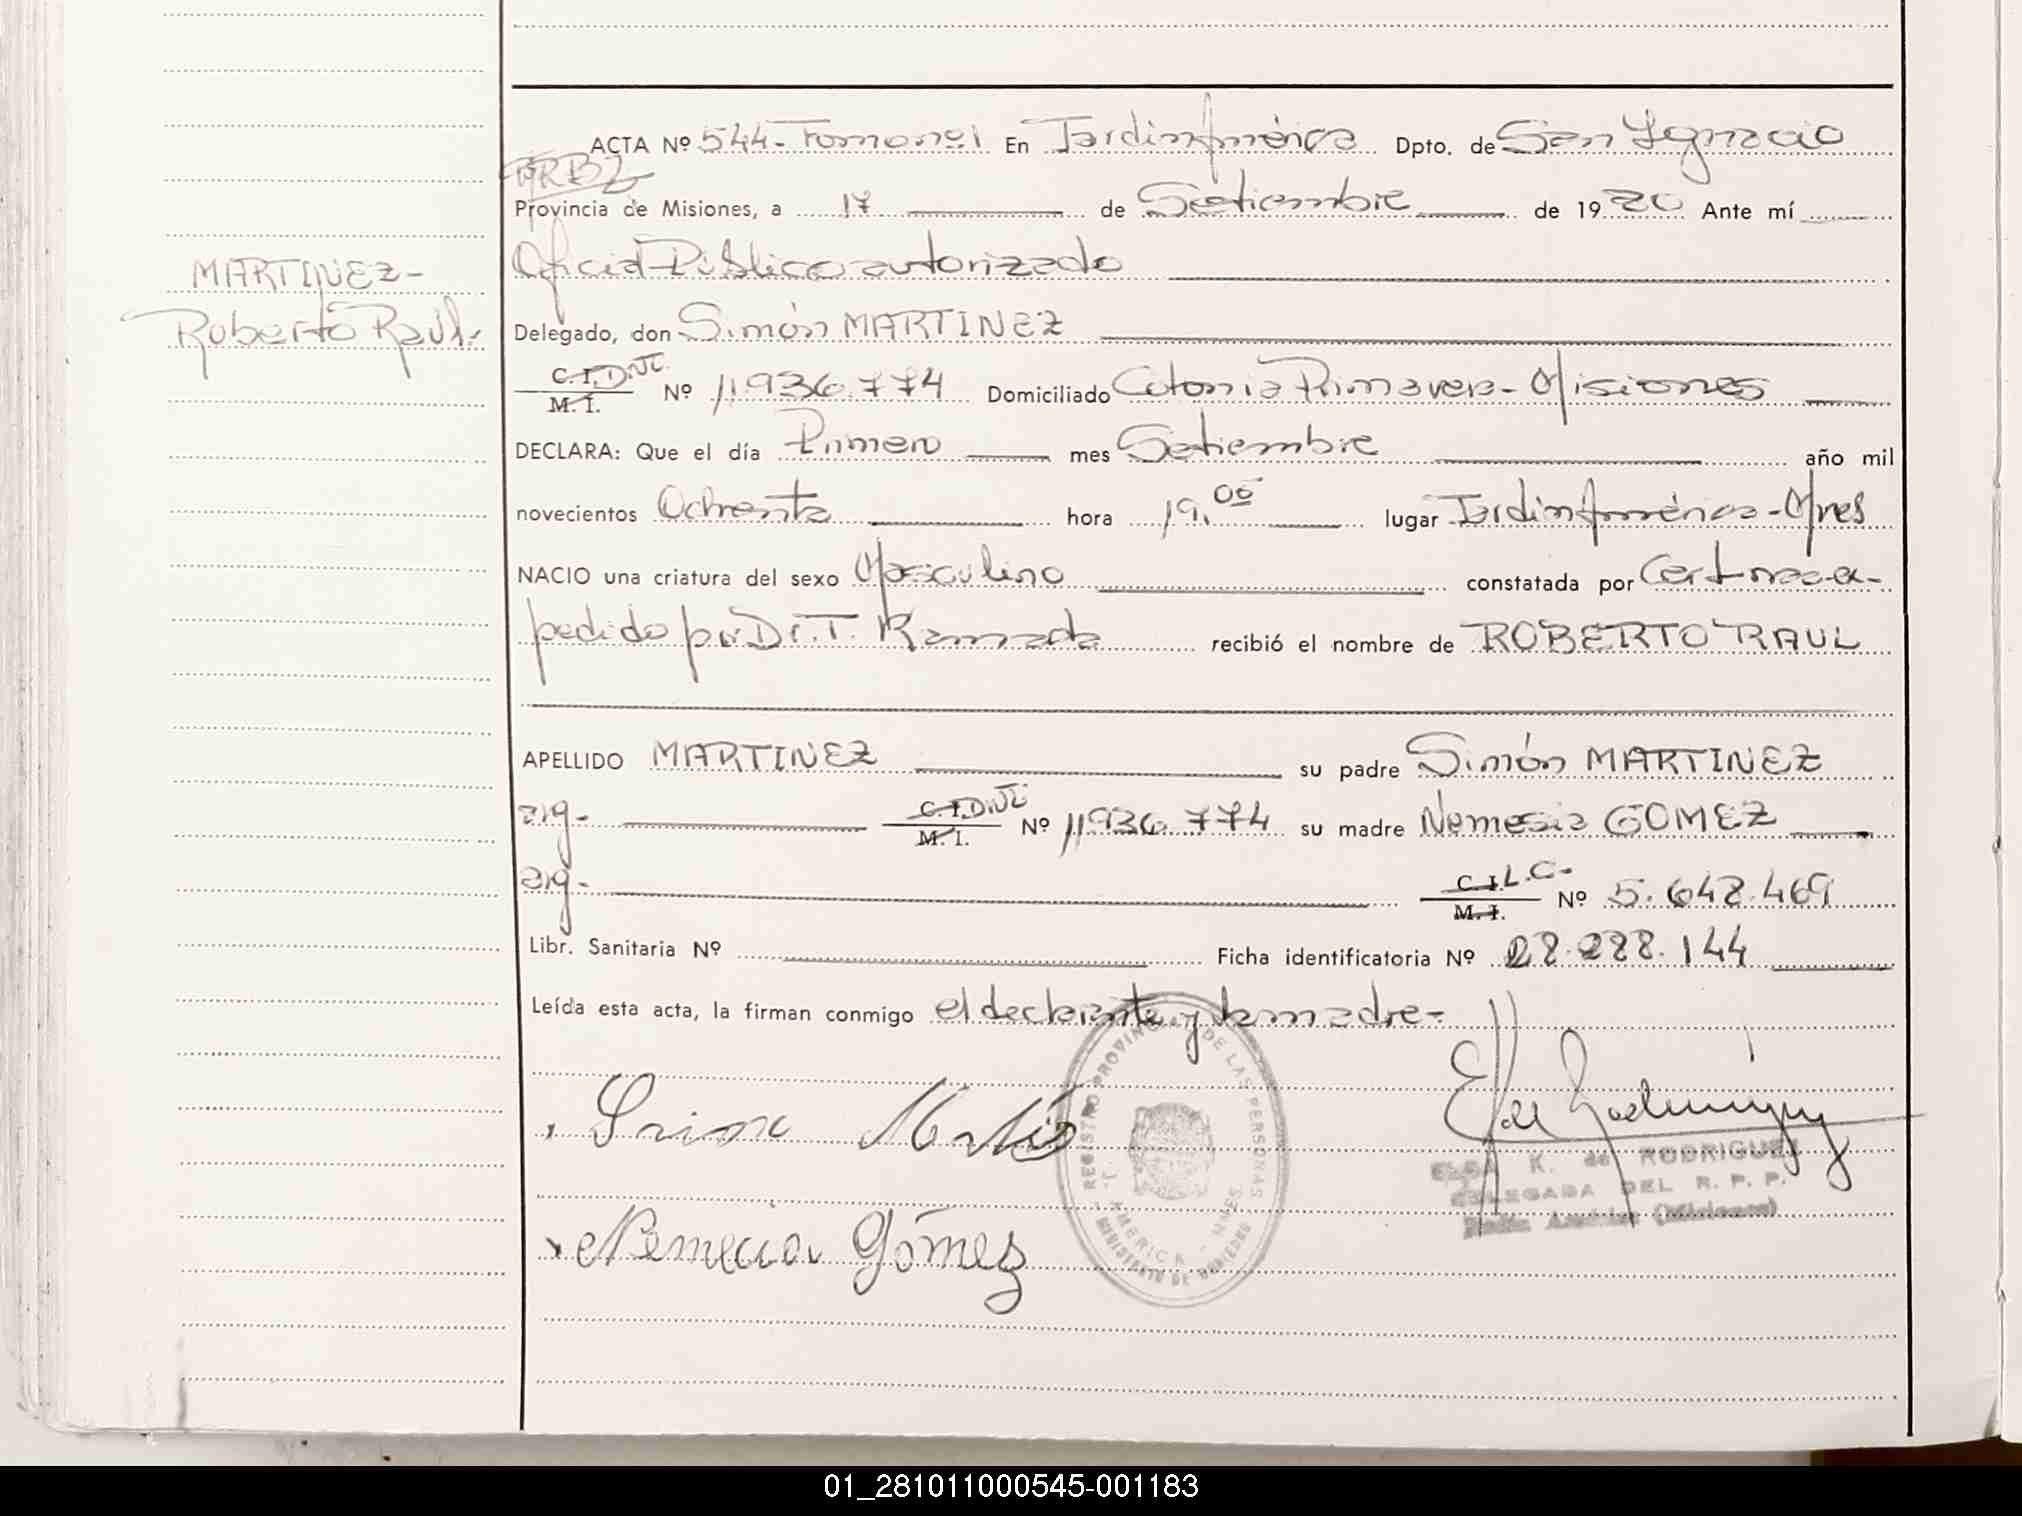 ACTA Nº 544- Tomo nº1 En Jardin América Dpto. de San Ygnacio
Provincia de Misiones, a 17 de Setiembre de 1980 Ante mí
Oficial Público autorizado
MARTINEZ-
Roberto Raúl.
Delegado, don Simón MARTINEZ
C.I. D.N.I. M.I. Nº 11.936.774 Domiciliado Colonia Primavera- Misiones
DECLARA: Que el día Primero mes Setiembre año mil
novecientos Ochenta hora 19.00 lugar Jardin América- Mnes
NACIO una criatura del sexo Masculino constatada por Cert.nac.ex-
pedido por Dr. T. Ramada recibió el nombre de ROBERTO RAUL
APELLIDO MARTINEZ su padre Simón MARTINEZ
arg- C.I. D.N.I. M.I. Nº 11.936.774 su madre Nemesia GOMEZ
arg- C.I. L.C- M.I. Nº 5.648.469
Libr. Sanitaria Nº Ficha identificatoria Nº 28.288.144
Leída esta acta, la firman conmigo el declarante y la madre-
REGISTRO PROVINCIAL DE LAS PERSONAS
J. AMERICA - MNES.
MINISTERIO DE GOBIERNO
ELSA K. de RODRIGUEZ
DELEGADA DEL R. P. P.
Jardín América (Misiones)
Nemecia Gómez
01_281011000545-001183